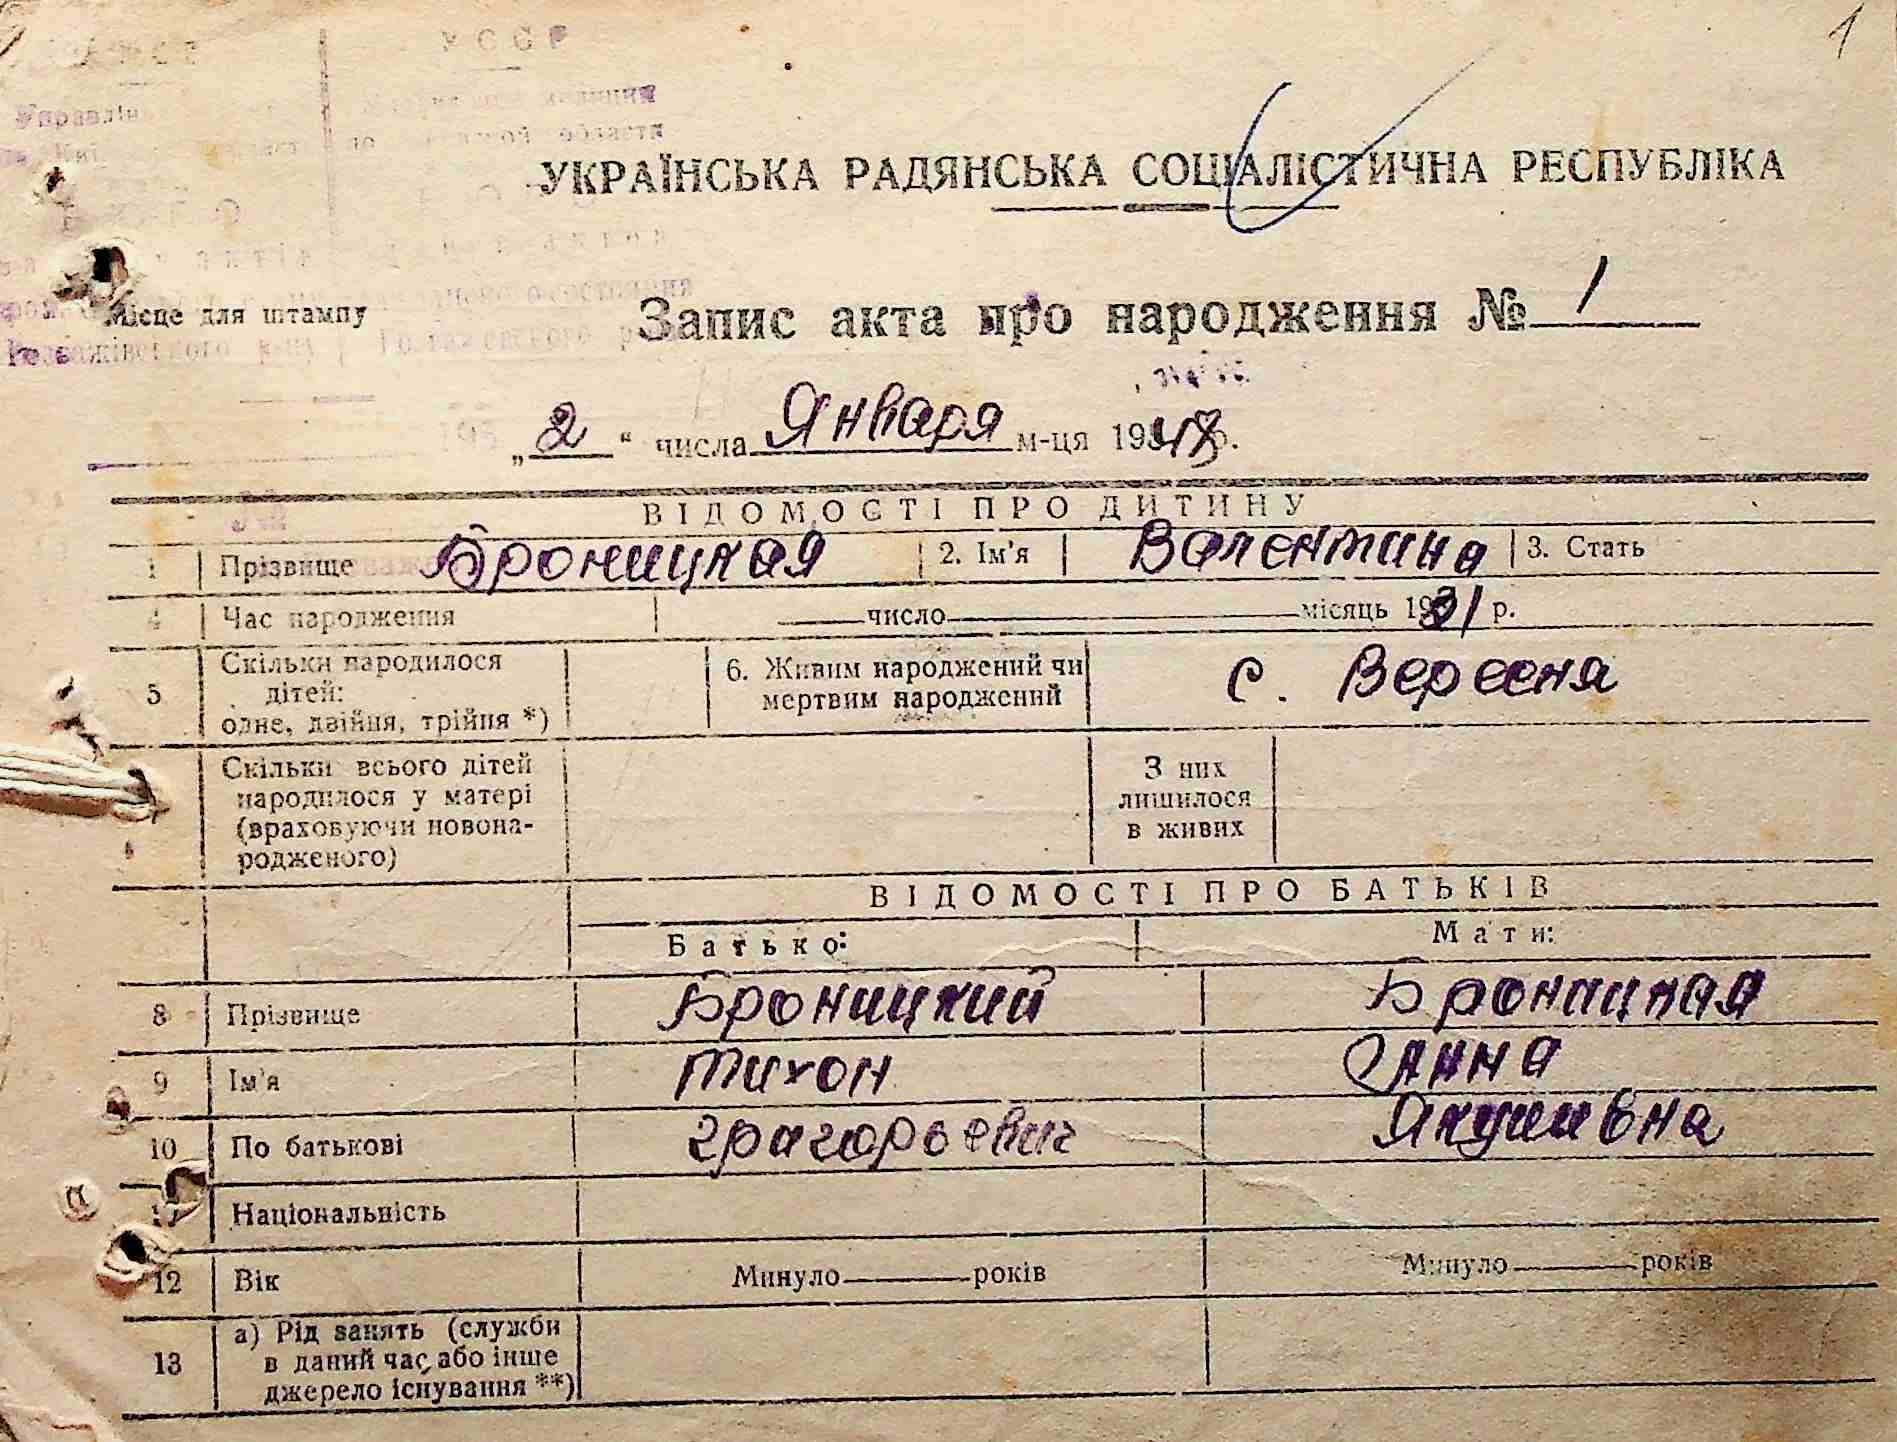 1
УССР
Управлін
области
УКРАЇНСЬКА РАДЯНСЬКА СОЦІАЛІСТИЧНА РЕСПУБЛІКА
Місце для штампу
Запис акта про народження № 1
„2“ числа Января м-ця 1948 р.
ВІДОМОСТІ ПРО ДИТИНУ
1 Прізвище Броницкая 2. Ім'я Валентина 3. Стать
4 Час народження число місяць 1931 р.
5 Скільки народилося дітей: одне, двійня, трійня *) 6. Живим народжений чи мертвим народжений с. Вересня
Скільки всього дітей народилося у матері (враховуючи новонародженого) З них лишилося в живих
ВІДОМОСТІ ПРО БАТЬКІВ
Батько: Мати:
8 Прізвище Броницкий Броницкая
9 Ім'я Тихон Анна
10 По батькові Григорьевич Якумивна
11 Національність
12 Вік Минуло років Минуло років
13 а) Рід занять (служби в даний час або інше джерело існування **)